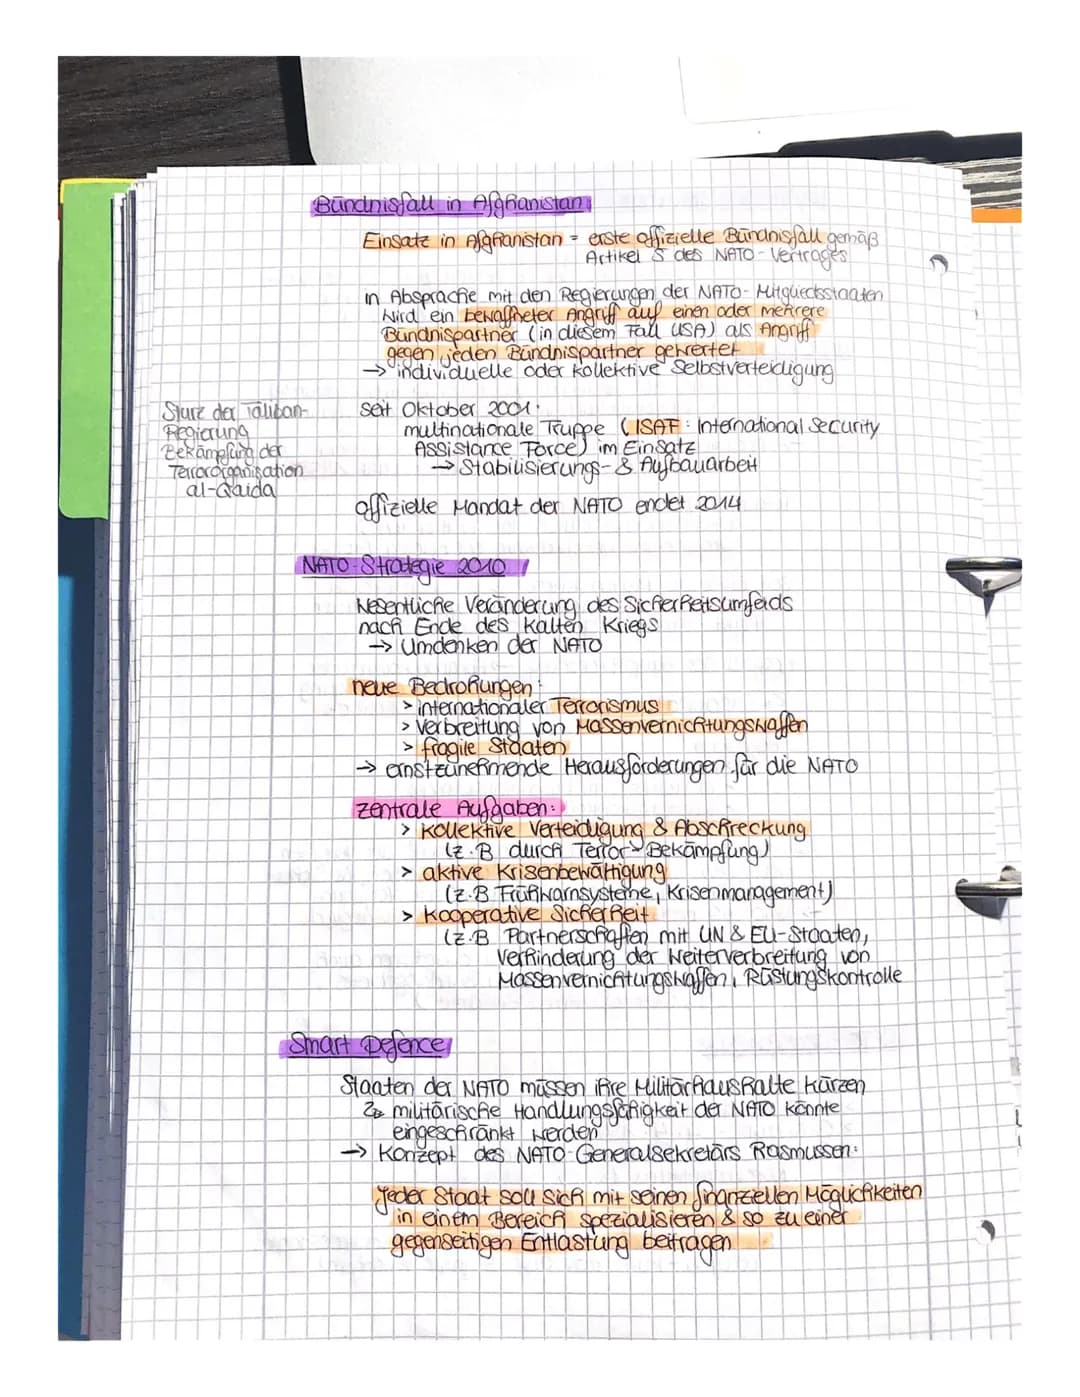 Bündnisfall in Afghanistan
Einsatz in Afghanistan = erste offizielle Bündnisfall gemäß
Artikel 5 des NATO-Vertrages
in Absprache mit den Regierungen der NATO-Mitgliedsstaaten
wird ein bewaffneter Angriff auf einen oder mehrere
Bündnispartner (in diesem Fall USA) als Angriff
gegen jeden Bündnispartner gewertet
→ individuelle oder kollektive Selbstverteidigung
Sturz der Taliban-
Regierung
Bekämpfung der
Terrororganisation
al-Qaida
Seit Oktober 2001:
multinationale Truppe (ISAF: International Security
Assistance Force) im Einsatz
→ Stabilisierungs- & Aufbauarbeit
offizielle Mandat der NATO endet 2014
NATO-Strategie 2010
Wesentliche Veränderung des Sicherheitsumfelds
nach Ende des Kalten Kriegs
→ Umdenken der NATO
neue Bedrohungen:
> internationaler Terrorismus
> Verbreitung von Massenvernichtungswaffen
> fragile Staaten
→ ernstzunehmende Herausforderungen für die NATO
zentrale Aufgaben:
> Kollektive Verteidigung & Abschreckung
(z.B durch Terror-Bekämpfung)
> aktive Krisenbewältigung
(z.B Frühwarnsysteme, Krisenmanagement)
> Kooperative Sicherheit
(z.B Partnerschaften mit UN & EU-Staaten,
Verhinderung der Weiterverbreitung von
Massenvernichtungswaffen, Rüstungskontrolle
Smart Defence
Staaten der NATO müssen ihre Militärhaushalte kürzen
↳ militärische Handlungsfähigkeit der NATO könnte
eingeschränkt werden
→ Konzept des NATO-Generalsekretärs Rasmussen:
Jeder Staat soll sich mit seinen finanziellen Möglichkeiten
in einem Bereich spezialisieren & so zu einer
gegenseitigen Entlastung beitragen